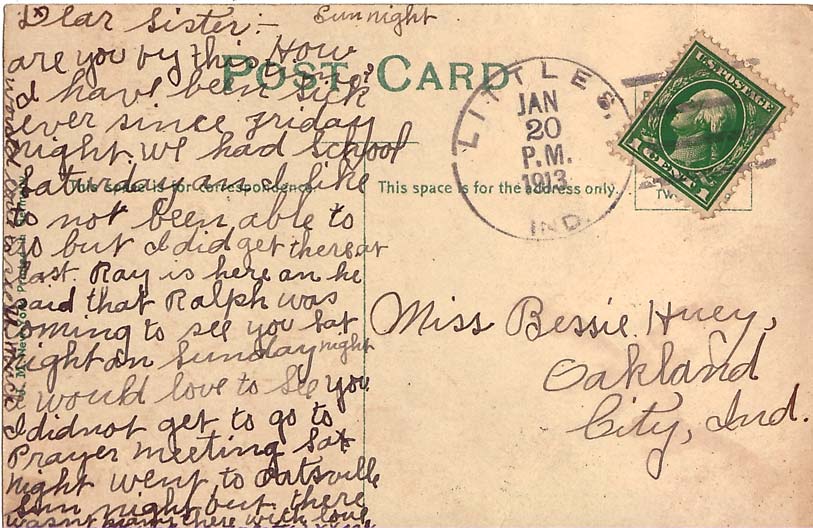 Sun night
Dear Sister:—
are you by this. How
I have been sick
ever since Friday
night. We had School
Saturday and I like
to not been able to
go but I did get there at
last. Ray is here an he
said that Ralph was
coming to see you Sat
night an Sunday night
I would love to see you
I did not get to go to
Prayer meeting Sat
night went to Oatsville
Sun night but there
wasnt many there with love
POST CARD
This space is for correspondence.
This space is for the address only.
LITTLES,
JAN
20
P.M.
1913
IND.
U.S. POSTAGE
1 CENT 1
TW
Miss Bessie Huey,
Oakland
City, Ind.